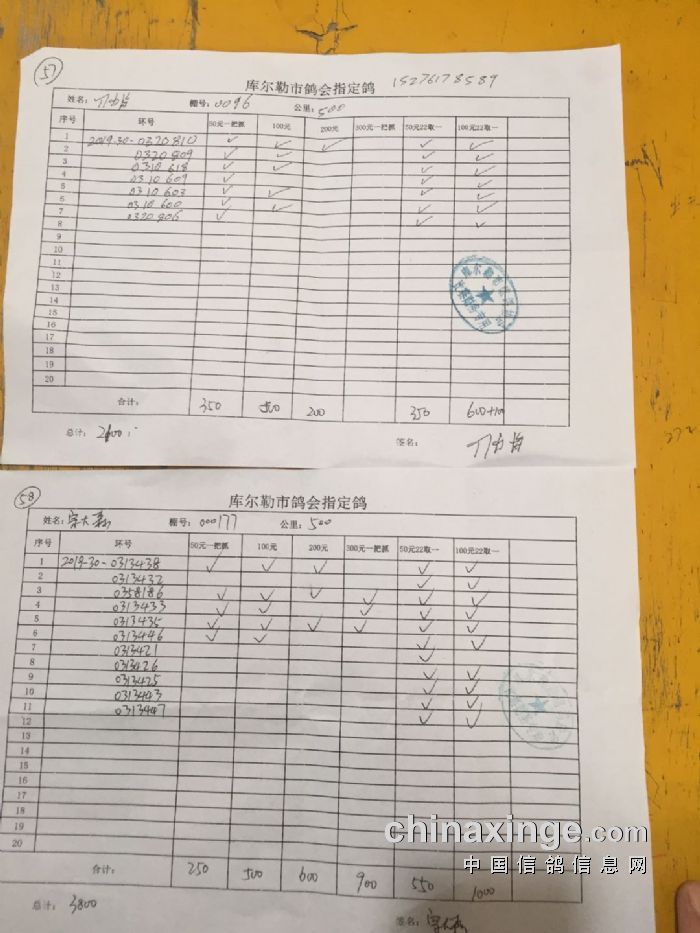 57
库尔勒市鸽会指定鸽 15276178589
姓名: 棚号: 0096 公里: 500
序号 环号 50元一把抓 100元 200元 300元一把抓 50元22取一 100元22取一
1 2019-30-0320810 ✓ ✓ ✓ ✓ ✓
2 0320809 ✓ ✓ ✓ ✓
3 0310618 ✓ ✓ ✓ ✓
4 0310609 ✓ ✓ ✓
5 0310603 ✓ ✓ ✓ ✓
6 0310600 ✓ ✓ ✓ ✓
7 0320806 ✓ ✓ ✓
8
9
10
11
12
13
14
15
16
17
18
19
20
合计: 350 500 200 350 600+100
总计: 2100 签名:
58
库尔勒市鸽会指定鸽
姓名: 棚号: 000177 公里: 500
序号 环号 50元一把抓 100元 200元 300元一把抓 50元22取一 100元22取一
1 2019-30-0313438 ✓ ✓ ✓ ✓ ✓
2 0313432 ✓ ✓
3 0358186 ✓ ✓ ✓ ✓ ✓ ✓
4 0313433 ✓ ✓ ✓ ✓ ✓
5 0313435 ✓ ✓ ✓ ✓ ✓ ✓
6 0313446 ✓ ✓ ✓ ✓
7 0313421 ✓
8 0313426 ✓ ✓
9 0313425 ✓ ✓
10 0313443 ✓ ✓
11 0313447 ✓ ✓
12
13
14
15
16
17
18
19
20
合计: 250 500 600 900 550 1000
总计: 3800 签名:
chinaxinge.com
中国信鸽信息网